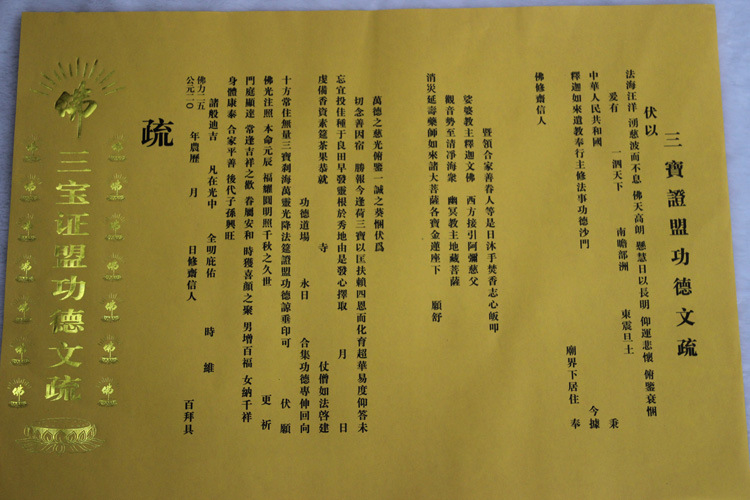 三寶證盟功德文疏
伏以
法海汪洋 湧慈波而不息 佛天高朗 懸慧日以長明 仰運悲懷 俯鑒哀悃
爰有 一泗天下 南瞻部洲 東震旦土 秉
中華人民共和國 今據
釋迦如來遺教奉行主修法事功德沙門 廟界下居住 奉
佛修齋信人
暨領合家善眷人等是日沐手焚香志心皈叩
娑婆教主釋迦文佛 西方接引阿彌慈父
觀音勢至清淨海衆 幽冥教主地藏菩薩
消災延壽藥師如來諸大菩薩各寶金蓮座下 願舒
萬德之慈光俯鑒一誠之葵悃伏爲
切念善因宿 勝報今逢荷三寶以匡扶賴四恩而化育超華易度仰答未
忘宜投佳種于良田早發靈根於秀地由是發心擇取 月 日
虔備香資素筵茶果恭就 寺 仗僧如法啓建
功德道場 永日 合集功德專伸回向
十方常住無量三寶刹海萬靈光降法筵證盟功德諒垂印可 伏願
佛光注照 本命元辰 福耀圓明照千秋之久世 更祈
門庭顯達 常逢吉祥之歡 眷屬安和 時獲喜顏之聚 男增百福 女納千祥
身體康泰 合家平善 後代子孫興旺
諸般迪吉 凡在光中 全明庇佑 時維
佛力二五
公元二〇 年農曆 月 日修齋信人 百拜具
疏
佛
三宝证盟功德文疏
佛
佛
佛
佛
佛
佛
佛
佛
佛
佛
佛
佛